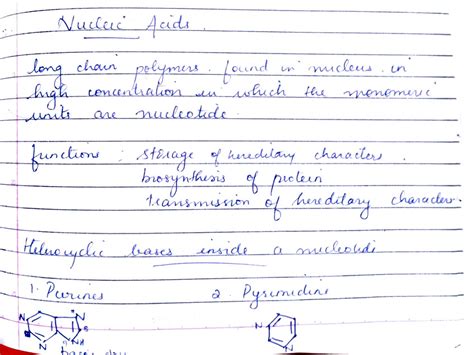 Nucleic Acids
long chain polymers. found in nucleus in
high concentration in which the monomeric
units are nucleotide.
functions : storage of hereditary characters.
biosynthesis of protein
transmission of hereditary character.
Heterocyclic bases inside a nucleotide
1. Purines 2. Pyrimidine
N N N
N NH N